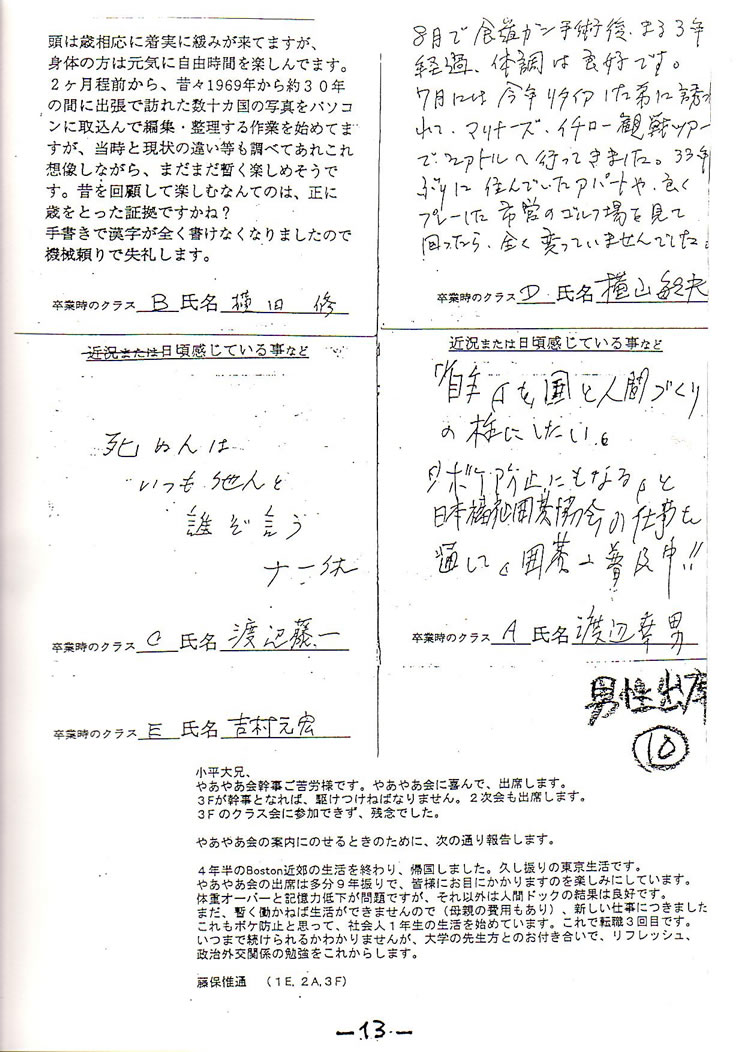 頭は歳相応に着実に緩みが来てますが、
身体の方は元気に自由時間を楽しんでます。
2ヶ月程前から、昔々1969年から約30年
の間に出張で訪れた数十カ国の写真をパソコ
ンに取込んで編集・整理する作業を始めてま
すが、当時と現状の違い等も調べてあれこれ
想像しながら、まだまだ暫く楽しめそうで
す。昔を回顧して楽しむなんてのは、正に
歳をとった証拠ですかね？
手書きで漢字が全く書けなくなりましたので
機械頼りで失礼します。
卒業時のクラス B 氏名 横田 修
8月で食道ガン手術後、まる3年
経過、体調は良好です。
7月には今年リタイアした弟に誘わ
れて、マリナーズ、イチロー観戦ツアー
でシアトルへ行ってきました。33年
ぶりに住んでいたアパートや、良く
プレーした市営のゴルフ場を見て
回ったら、全く変っていませんでした。
卒業時のクラス D 氏名 横山敏夫
近況または日頃感じている事など
死ぬんは
いつも他人と
誰ぞ言う
ナー休
卒業時のクラス C 氏名 渡辺藤一
近況または日頃感じている事など
「自主」を国と人間づくり
の柱にしたい。
「ボケ防止にもなる」と
日本福祉囲碁協会の仕事を
通して「囲碁」普及中!!
卒業時のクラス A 氏名 渡辺幸男
卒業時のクラス E 氏名 吉村元宏
男性出席
10
小平大兄、
やあやあ会幹事ご苦労様です。やあやあ会に喜んで、出席します。
3Fが幹事となれば、駆けつけねばなりません。2次会も出席します。
3Fのクラス会に参加できず、残念でした。
やあやあ会の案内にのせるときのために、次の通り報告します。
4年半のBoston近郊の生活を終わり、帰国しました。久し振りの東京生活です。
やあやあ会の出席は多分9年振りで、皆様にお目にかかりますのを楽しみにしています。
体重オーバーと記憶力低下が問題ですが、それ以外は人間ドックの結果は良好です。
まだ、暫く働かねば生活ができませんので（母親の費用もあり）、新しい仕事につきました
これもボケ防止と思って、社会人1年生の生活を始めています。これで転職3回目です。
いつまで続けられるかわかりませんが、大学の先生方とのお付き合いで、リフレッシュ、
政治外交関係の勉強をこれからします。
藤保惟通 （1E, 2A, 3F）
－13－